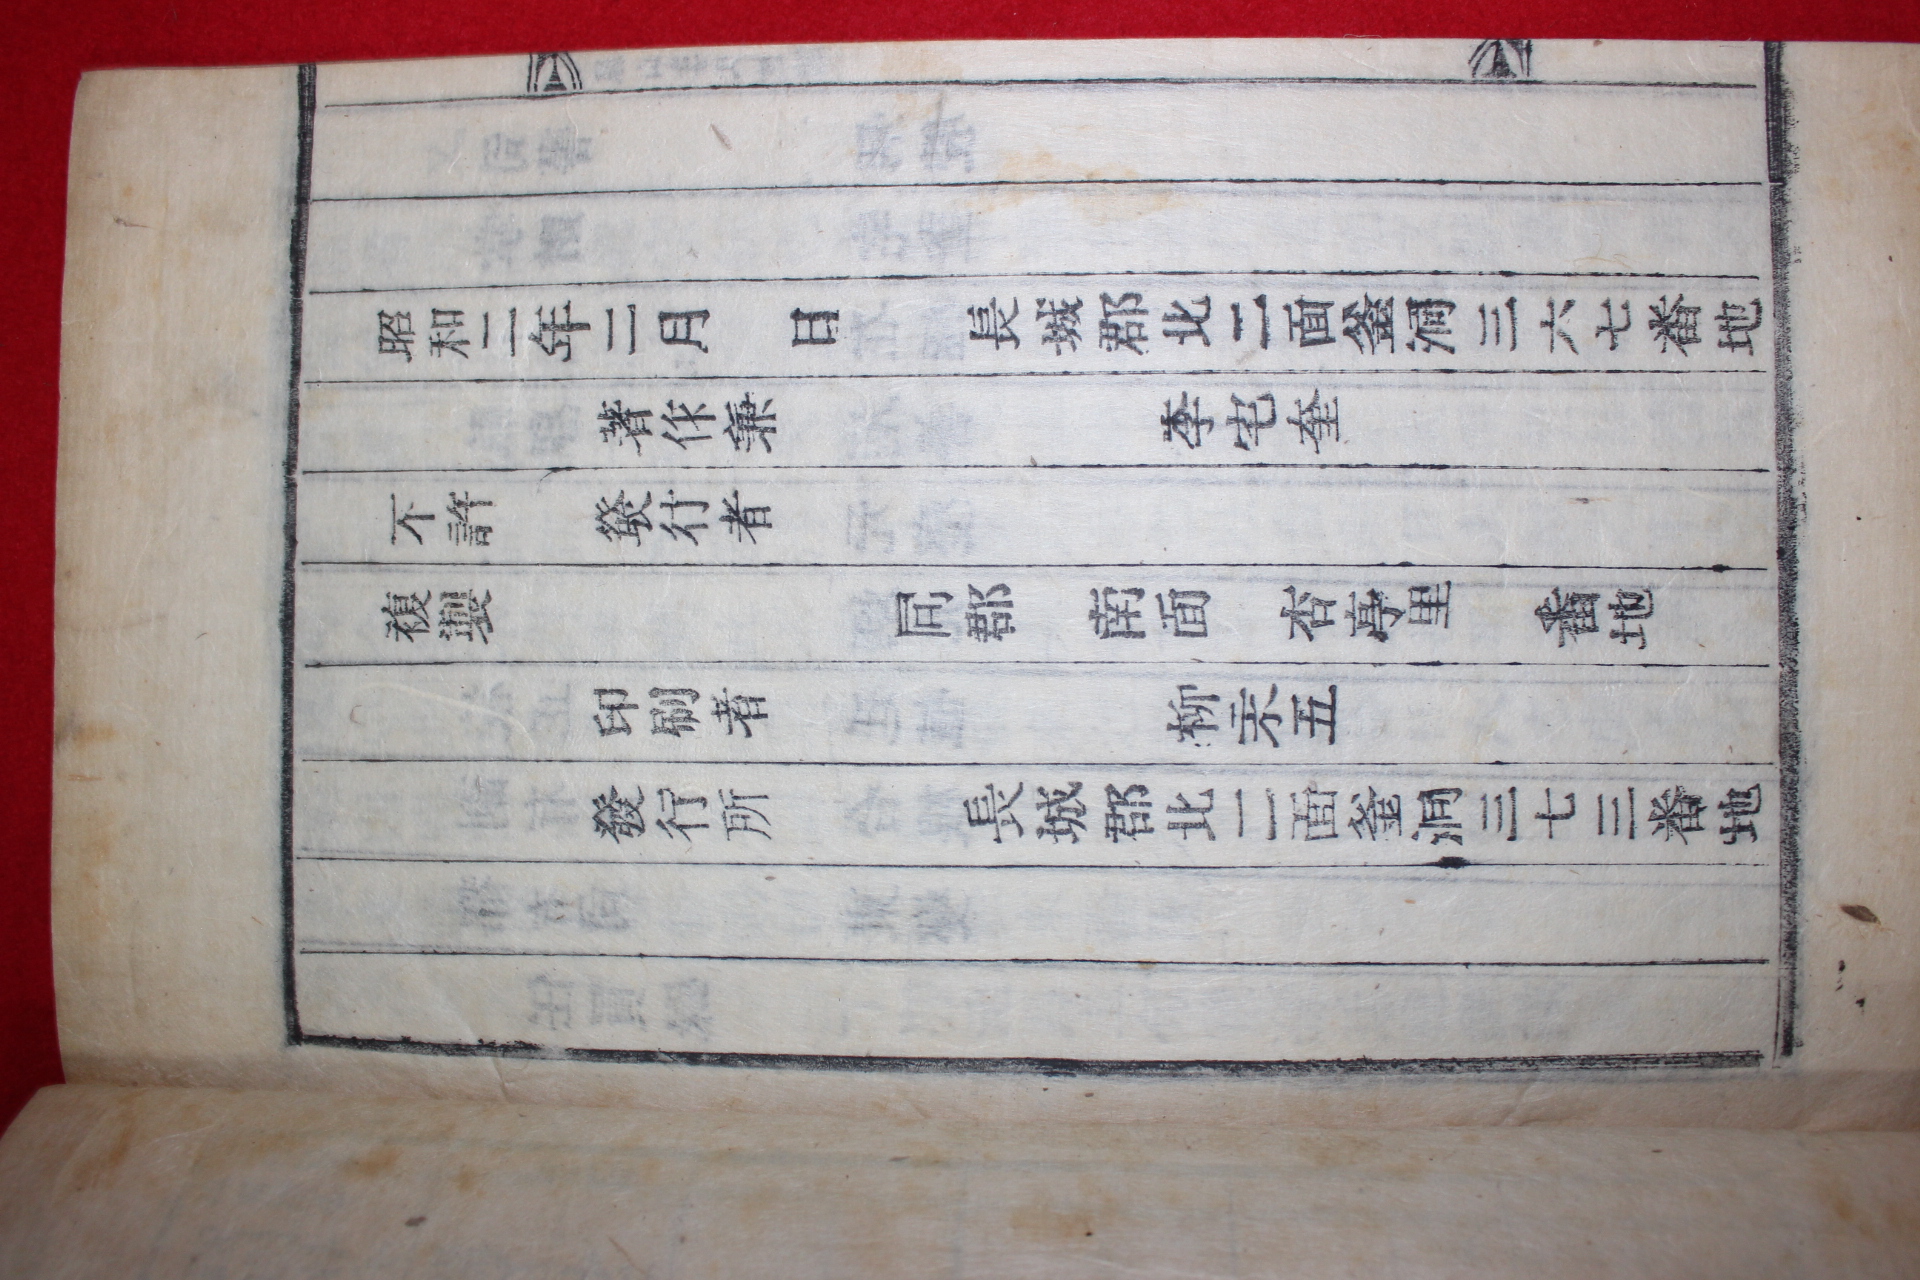 昭和二年二月　日　長城郡北二面釜洞三六七番地
著作兼　李宅奎
不許　發行者
複製　同郡　南面　杏亭里　番地
印刷者　柳永五
發行所　長城郡北二面釜洞三七三番地